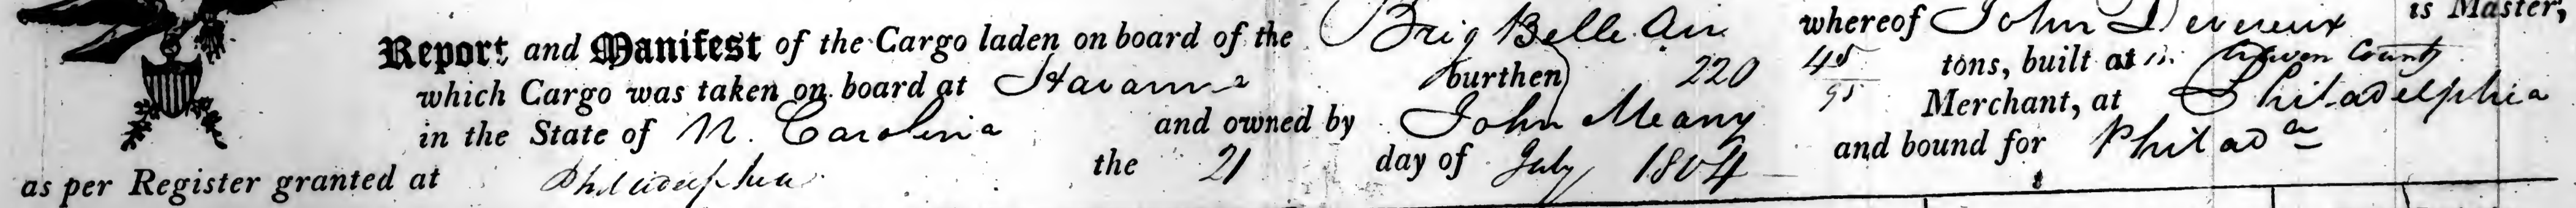 Report and Manifest of the Cargo laden on board of the Brig Belle Air whereof John Devereux is Master,
which Cargo was taken on board at Havanna burthen 220 45/95 tons, built at in Craven County
in the State of N. Carolina and owned by John Meany Merchant, at Philadelphia
as per Register granted at Philadelphia the 21 day of July 1804 and bound for Philada